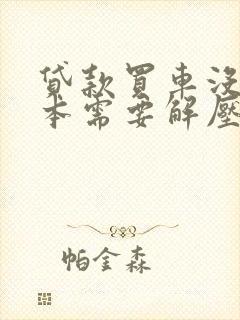 貸款買車沒
本需要解壓
帕金森